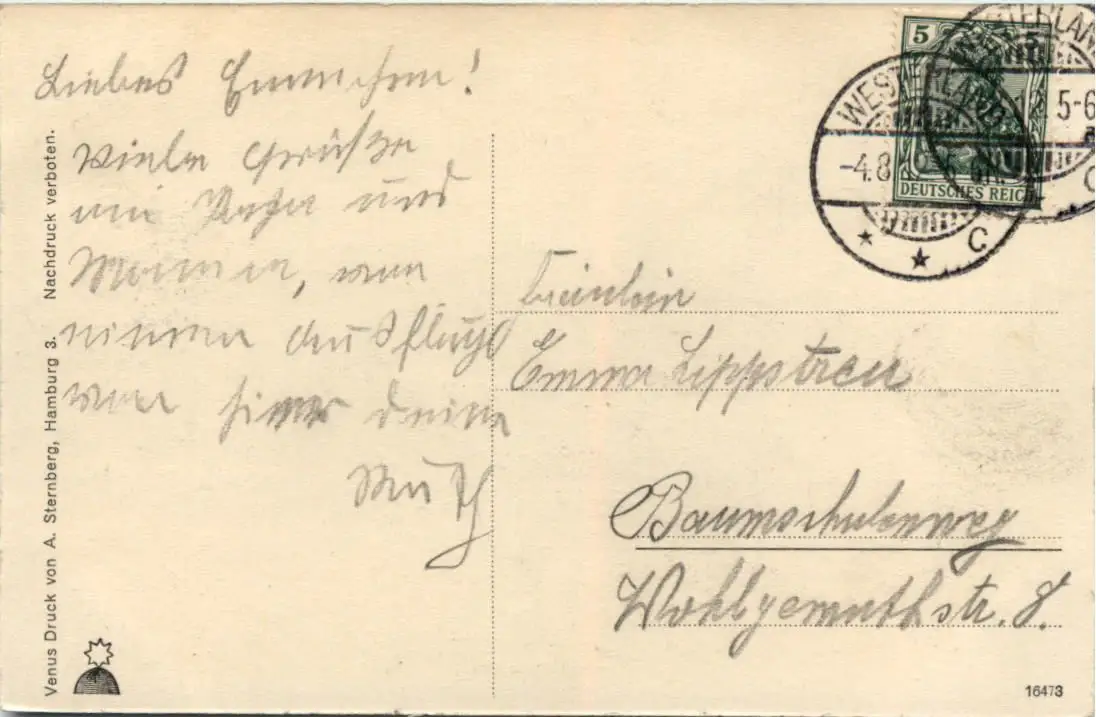 Liebes Emmchen!
Viele Grüße
an Papa und
Mama, von
einem Ausflug
von hier deine
Ruth
Fräulein
Emma Lippstreu
Baumschulenweg
Wohlgemuthstr. 8.
5 5
DEUTSCHES REICH
WESTERLAND
-4.8
C
WESTERLAND
5-6
C
Nachdruck verboten.
Venus Druck von A. Sternberg, Hamburg 3.
16473